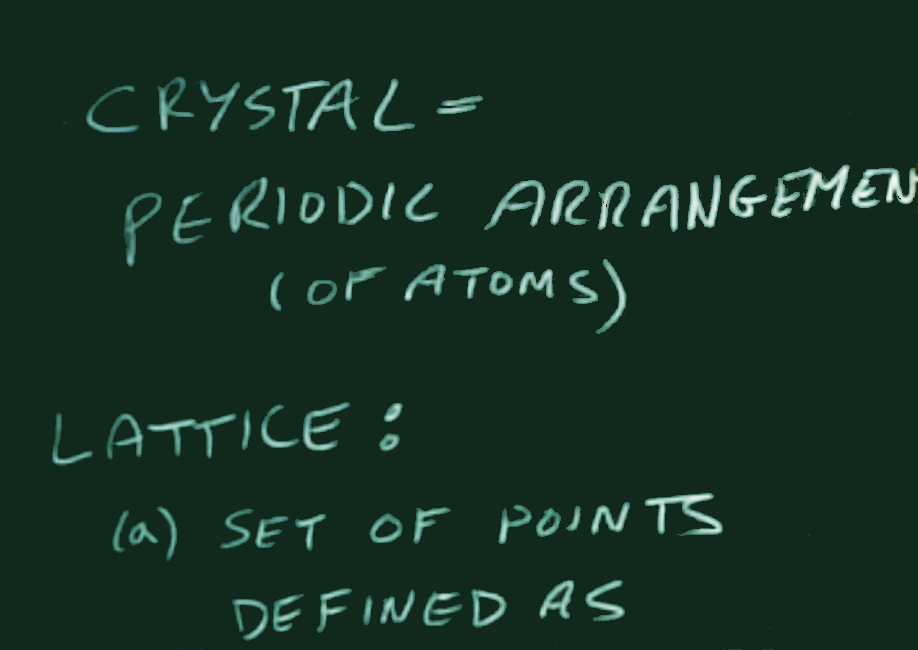 CRYSTAL =
PERIODIC ARRANGEMEN
(OF ATOMS)
LATTICE:
(a) SET OF POINTS
DEFINED AS